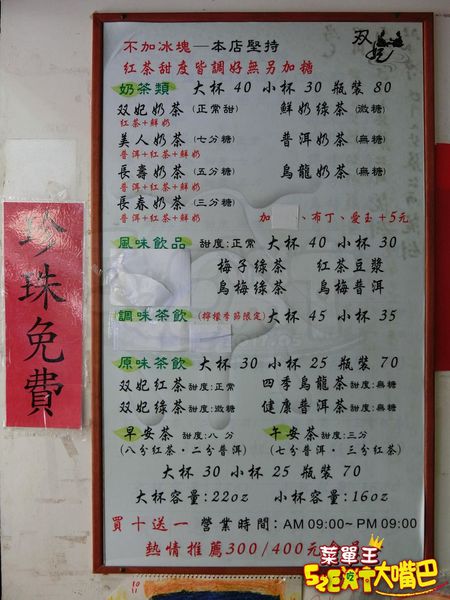 双妃
不加冰塊—本店堅持
紅茶甜度皆調好無另加糖
奶茶類 大杯 40 小杯 30 瓶裝 80
双妃奶茶(正常甜) 鮮奶綠茶(微糖)
紅茶+鮮奶
美人奶茶(七分糖) 普洱奶茶(無糖)
普洱+紅茶+鮮奶
長壽奶茶(五分糖) 烏龍奶茶(無糖)
普洱+紅茶+鮮奶
長春奶茶(三分糖)
普洱+紅茶+鮮奶 加 、布丁、愛玉+5元
風味飲品 甜度:正常 大杯 40 小杯 30
梅子綠茶 紅茶豆漿
烏梅綠茶 烏梅普洱
調味茶飲(檸檬季節限定)大杯 45 小杯 35
原味茶飲 大杯 30 小杯 25 瓶裝 70
双妃紅茶 甜度:正常 四季烏龍茶 甜度:無糖
双妃綠茶 甜度:微糖 健康普洱茶 甜度:無糖
早安茶 甜度:八分 午安茶 甜度:三分
(八分紅茶·二分普洱) (七分普洱·三分紅茶)
大杯 30 小杯 25 瓶裝 70
大杯容量:22oz 小杯容量:16oz
買十送一 營業時間:AM 09:00~ PM 09:00
熱情推薦300/400元
珍珠免費
菜單王
52EXT大嘴巴